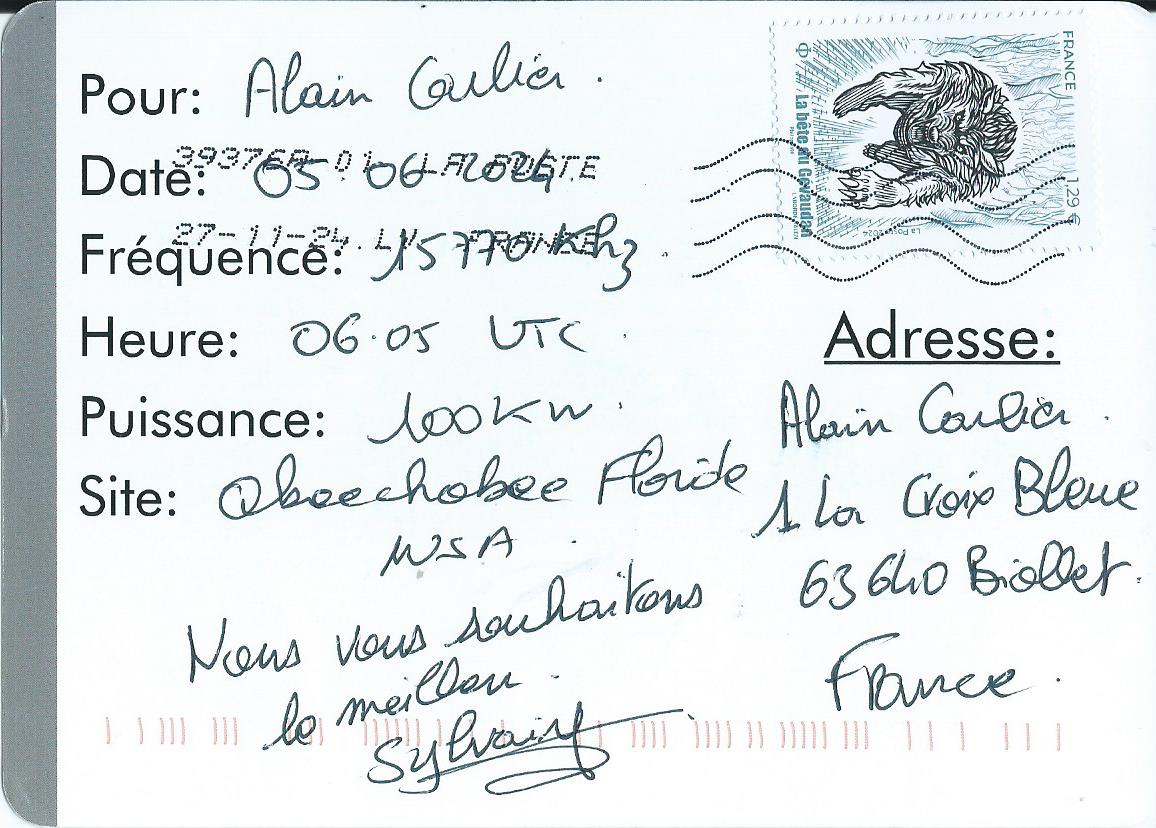 Pour: Alain Carlier.
Date: 05 06 2024
Fréquence: 15770 Khz.
Heure: 06.05 UTC.
Puissance: 100KW.
Site: Okeechobee Floride
USA.
Nous vous souhaitons
le meilleur.
Sylvain
FRANCE
1,29 €
La bête du Gévaudan
La Poste 2024
27-11-24
FRANCE
Adresse:
Alain Carlier.
1 La Croix Bleue
63640 Biollet.
France.